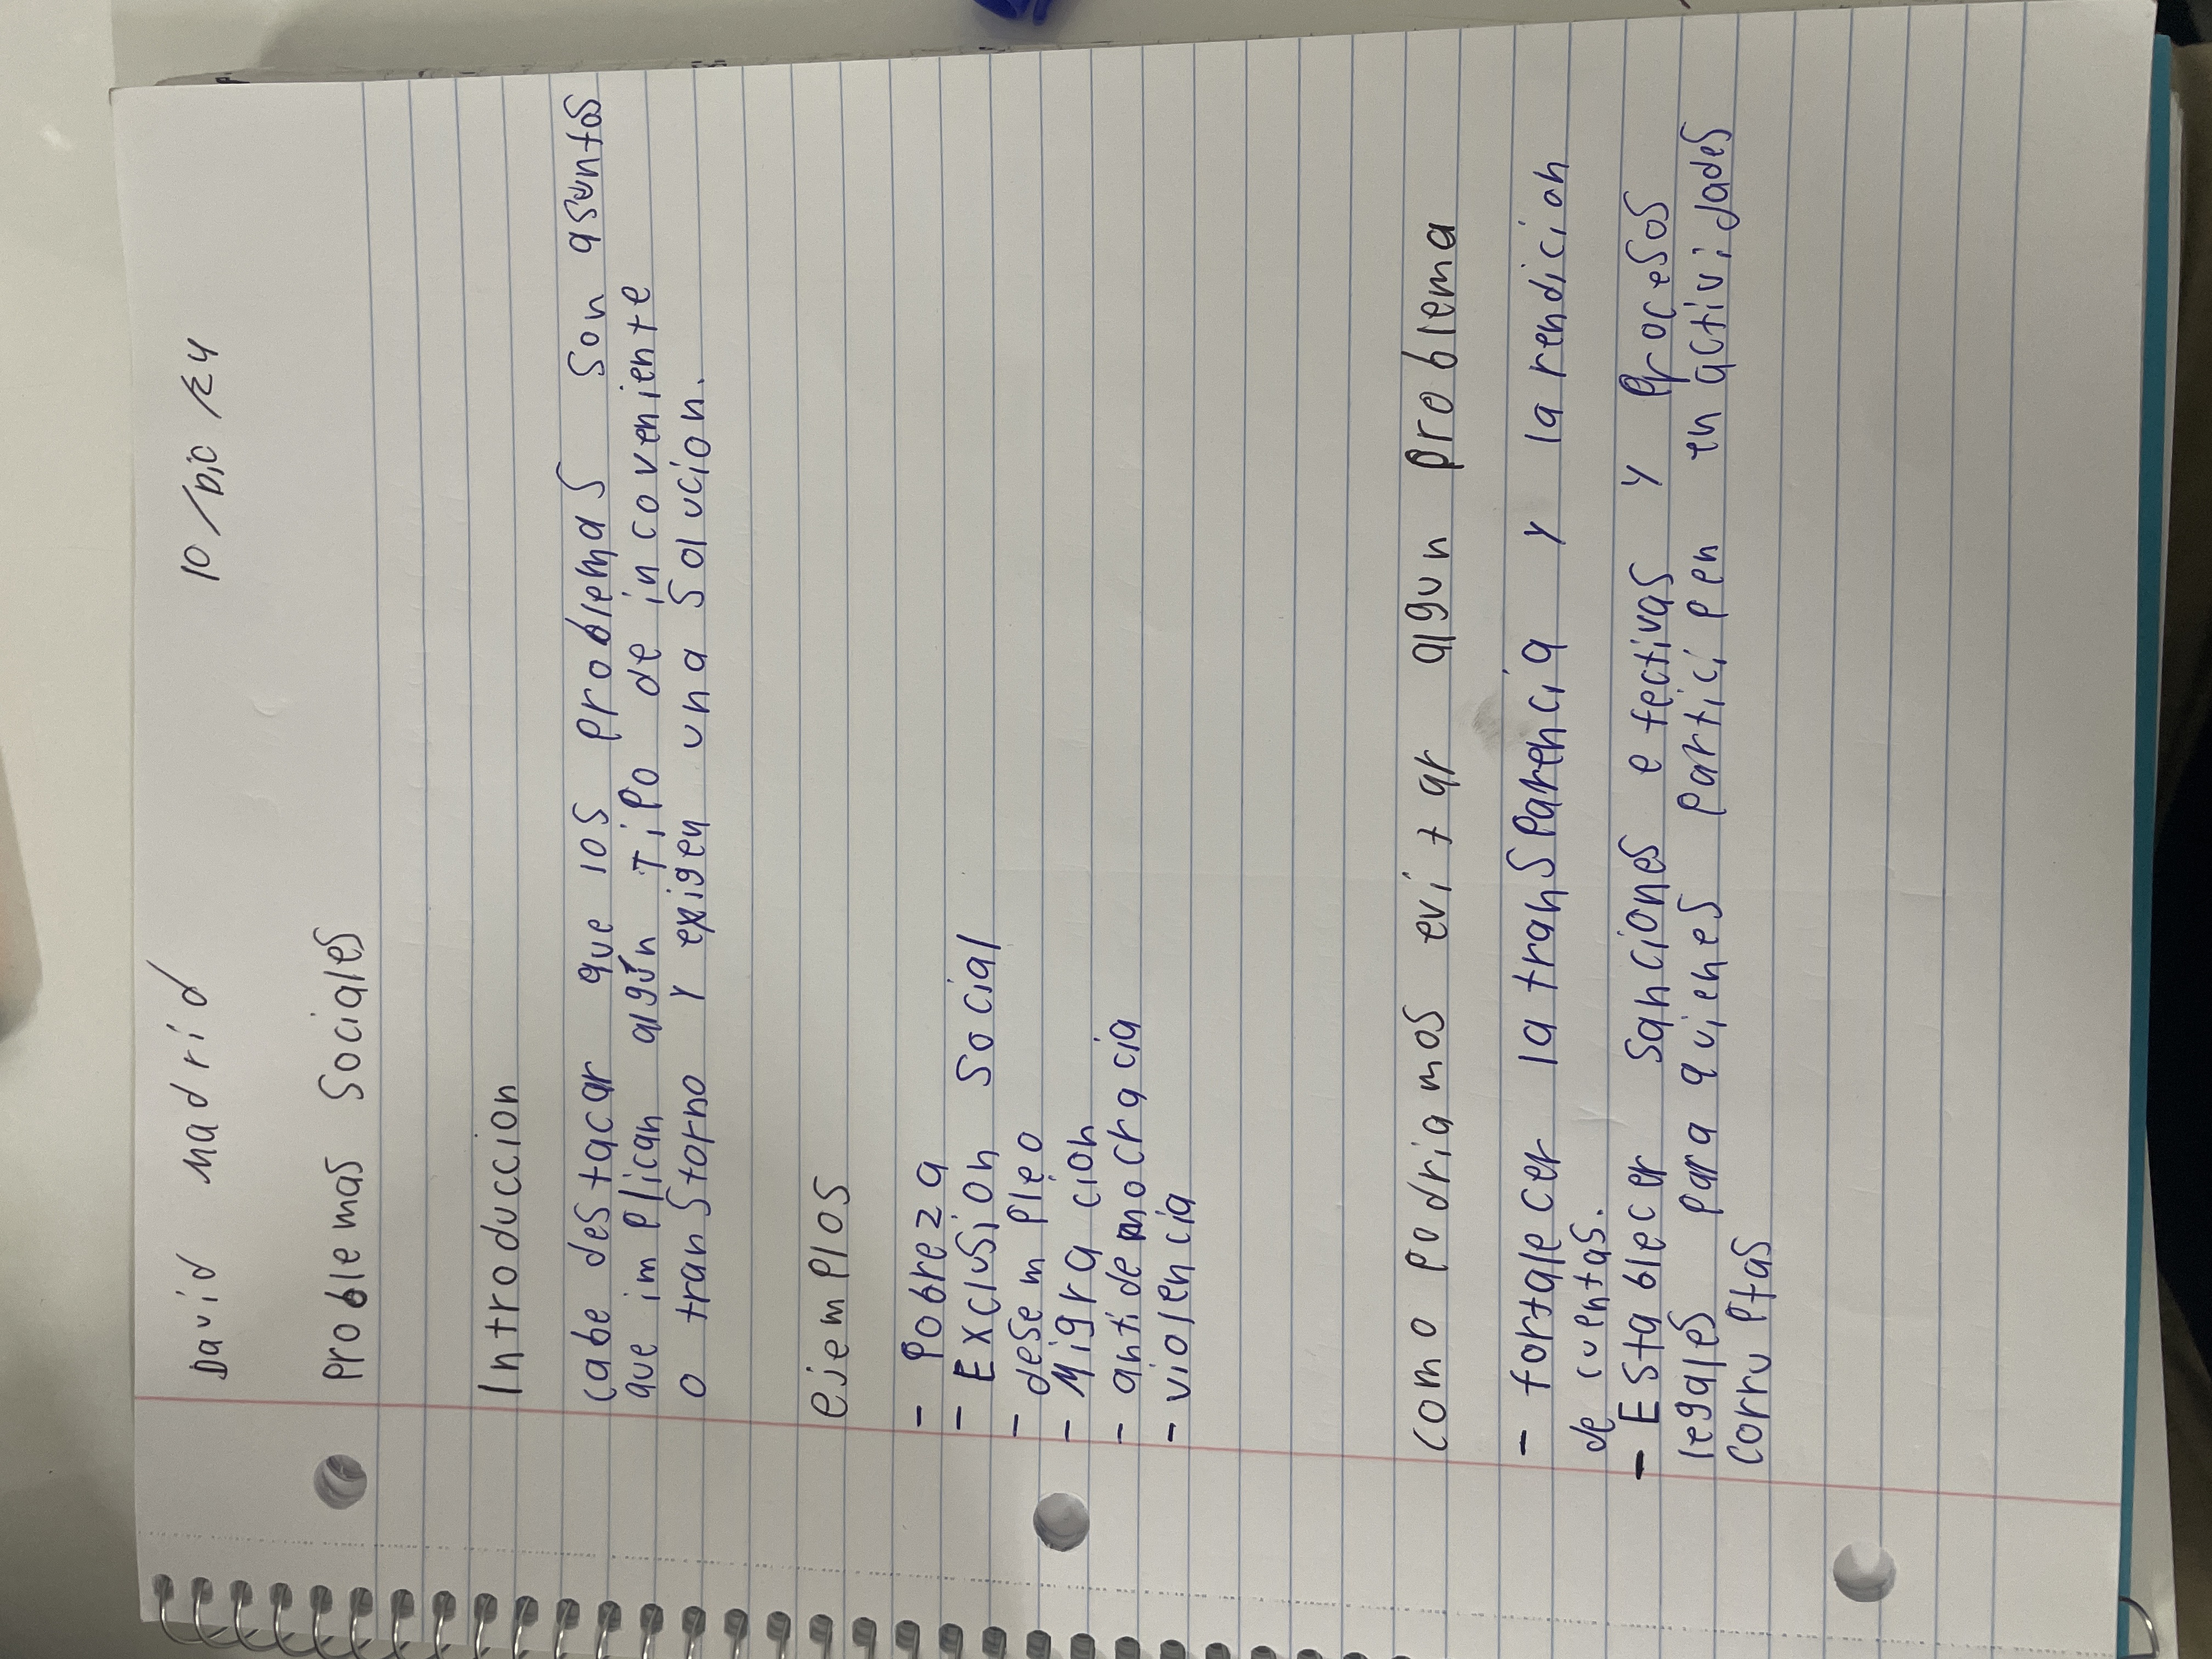 David Madrid 10/Dic/24
Problemas Sociales
Introduccion
cabe destacar que los problemas son asuntos
que implican algún Tipo de incoveniente
o transtorno y exigen una Solucion.
ejemplos
- Pobreza
- Exclusion Social
- desempleo
- Migracion
- antidemocracia
- violencia
como podriamos evitar algun problema
- fortalecer la transparencia y la rendicion
de cuentas.
- Establecer sanciones efectivas y procesos
legales para quienes participen en actividades
corruptas